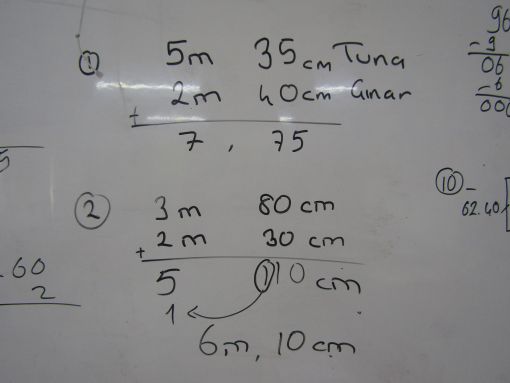 ① 5m 35cm Tuna
2m 40cm Çınar
+
7, 75
② 3m 80 cm
+ 2m 30 cm
5 110 cm
1
6m, 10cm
96
- 9
06
- 6
000
⑩ -
62.40
5
.60
2